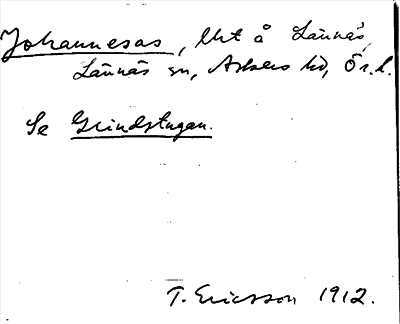 Johannesas, lht å Lännäs,
Lännäs sn, Askers hd, Ör. l.
Se Grindstugan.
T. Ericsson 1912.